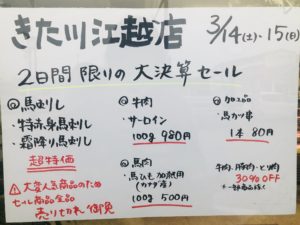 きた川江越店 3/14(土)・15(日)
2日間限りの大決算セール
◎馬刺し
・特赤身馬刺し
・霜降り馬刺し
超特価
⚠大変人気商品のため
セール商品全品
売り切れ御免
◎牛肉
・サーロイン
100g 980円
◎馬肉
・馬ひも加熱用
(カナダ産)
100g 500円
◎加工品
・馬カツ串
1本 80円
牛肉、豚肉・とり肉
30%OFF
*一部商品除く